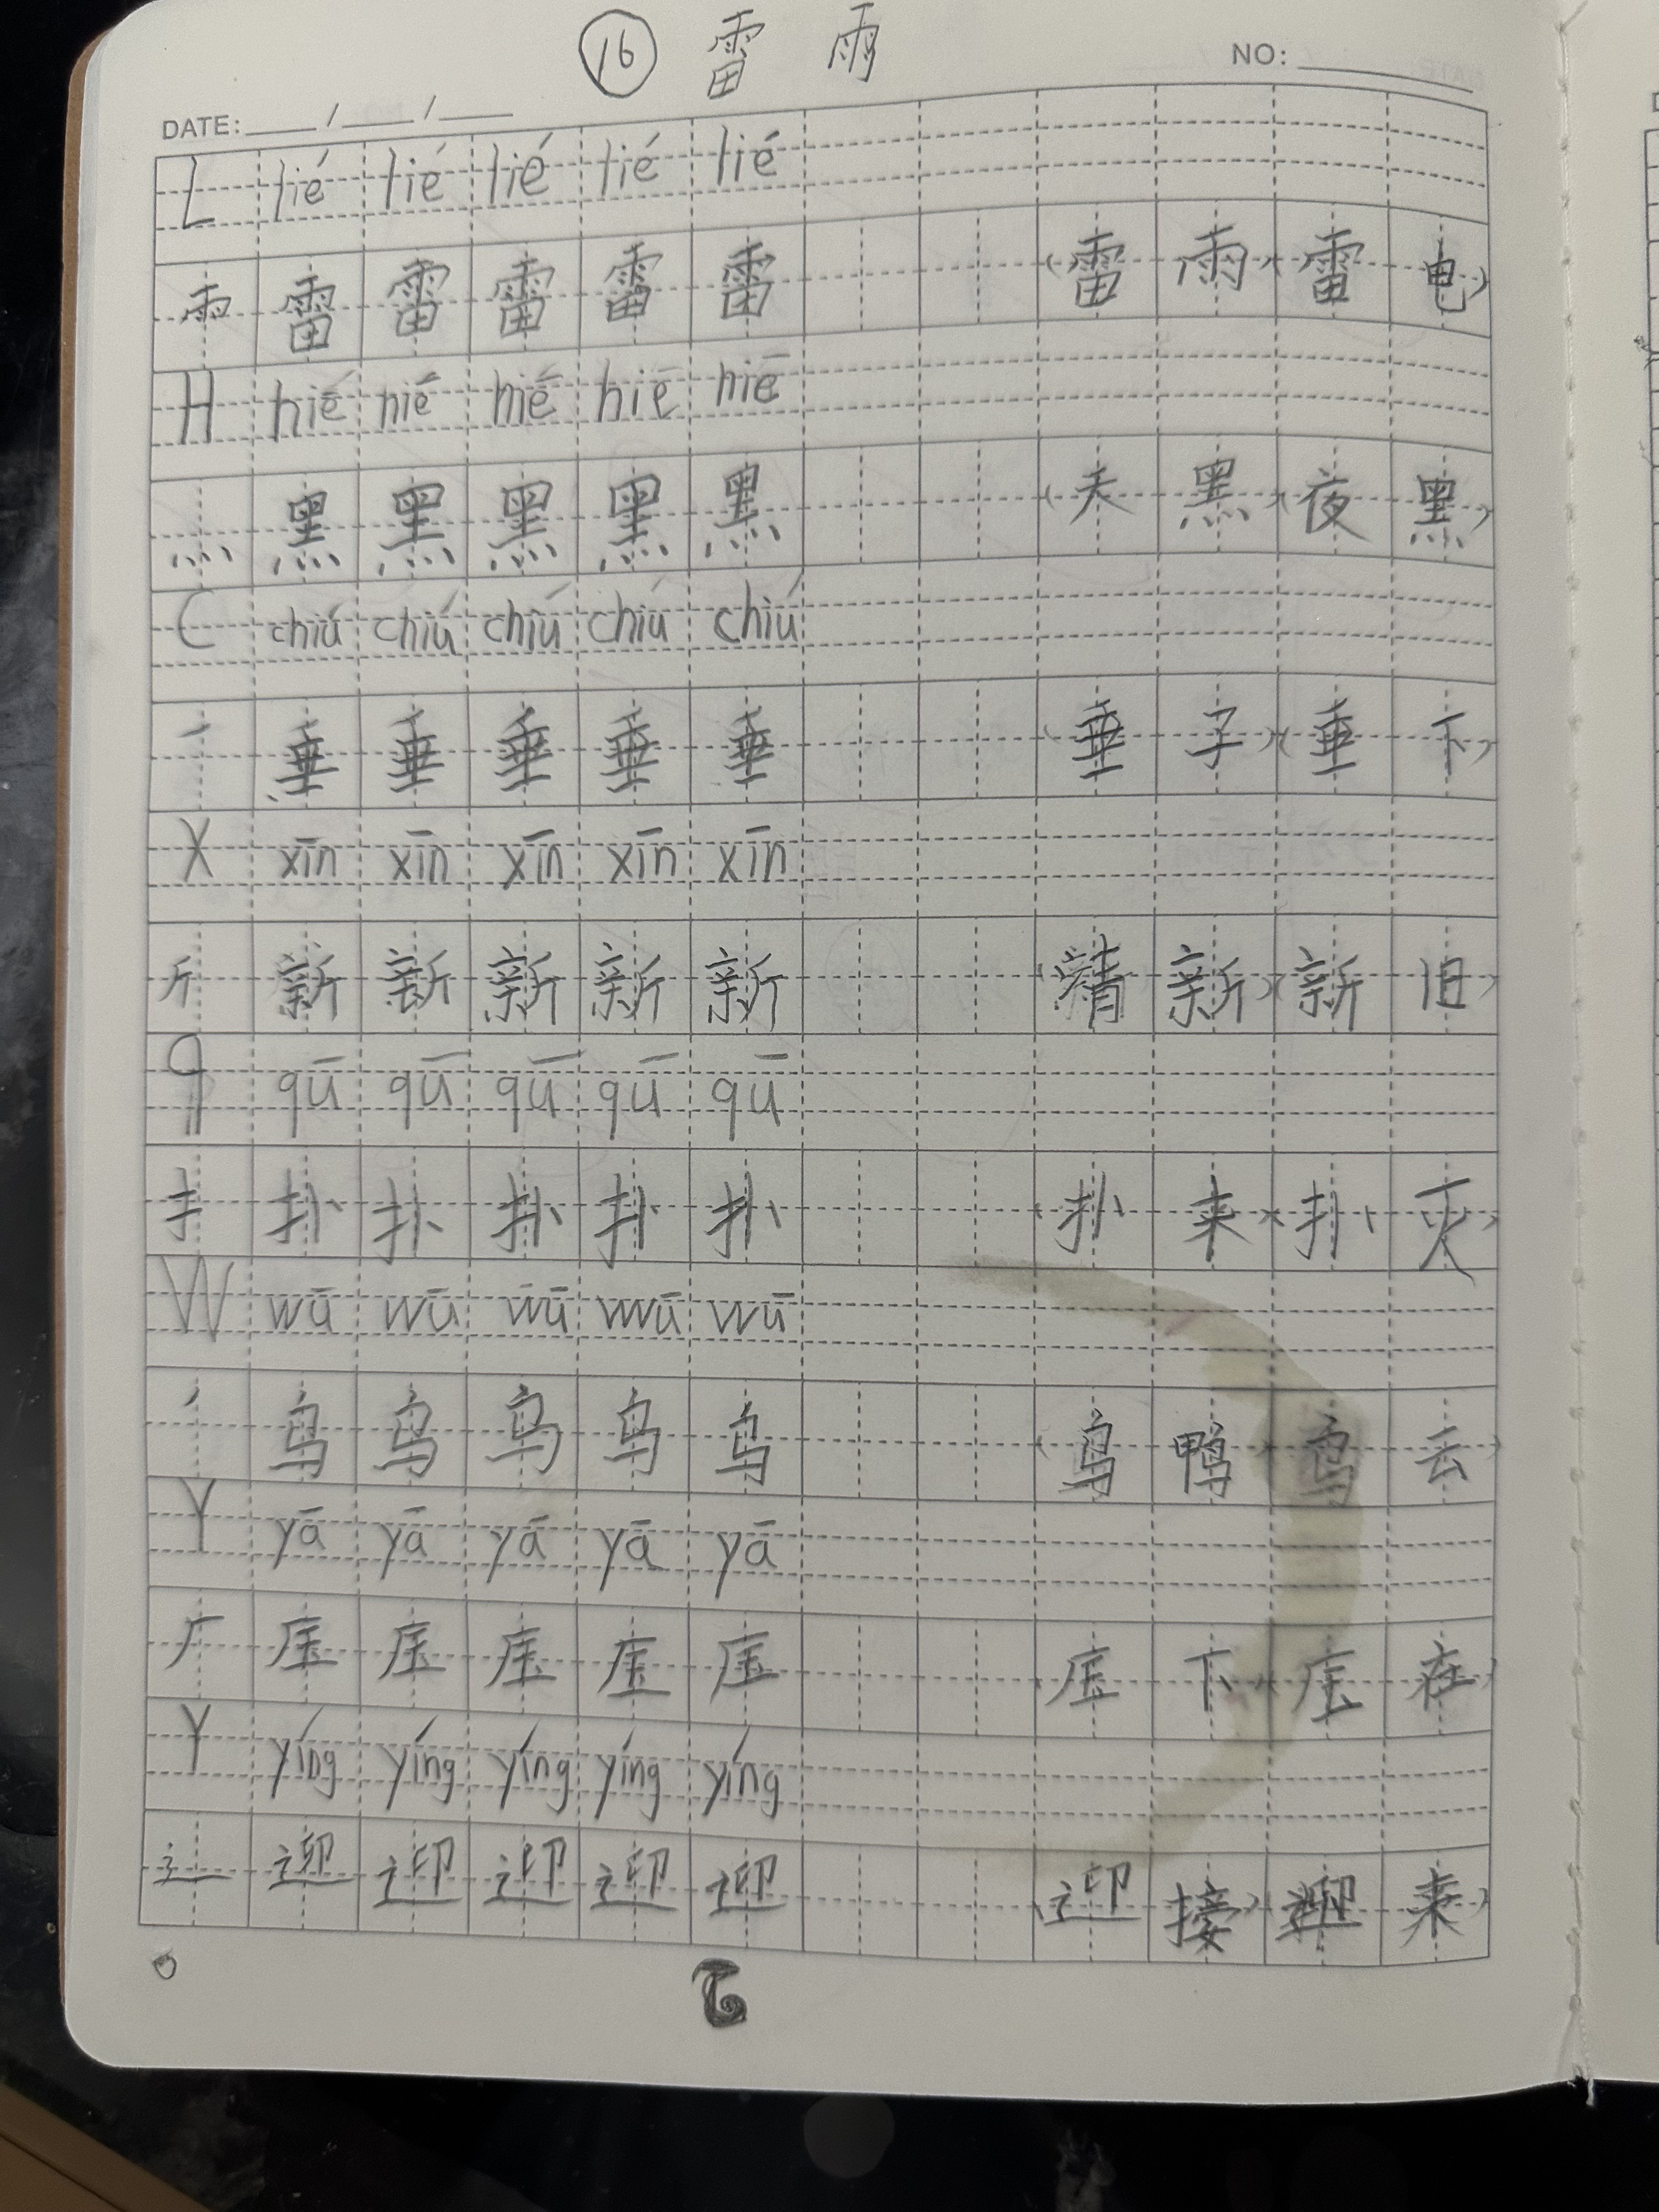 16 雷 雨
NO:
DATE: / /
L lié lié lié lié lié
雨 雷 雷 雷 雷 雷 (雷 雨)(雷 电)
H hiē niē hiē hiē hiē
灬 黑 黑 黑 黑 黑 (天 黑)(夜 黑)
C chiú chiú chiú chiú chiú
㇒ 垂 垂 垂 垂 垂 (垂 子)(垂 下)
X xīn xīn xīn xīn xīn
斤 新 新 新 新 新 (新)(新 旧)
q qū qū qū qū qū
扌 扑 扑 扑 扑 扑 (扑 来)(扑 灭)
W wū wū wū wū wū
㇒ 乌 乌 乌 乌 乌 (乌 鸭)(乌 云)
Y yā yā yā yā yā
厂 压 压 压 压 压 (压 下)(压 在)
Y yíng yíng yíng yíng yíng
辶 迎 迎 迎 迎 迎 (迎 接)(迎 来)